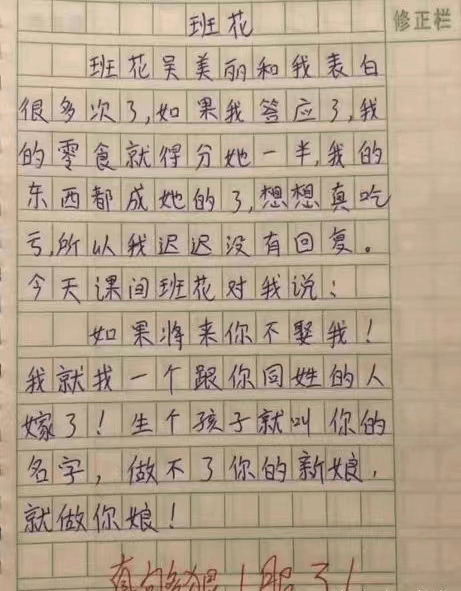 班花
修正栏
班花吴美丽和我表白
很多次了,如果我答应了,我
的零食就得分她一半,我的
东西都成她的了,想想真吃
亏,所以我迟迟没有回复。
今天课间班花对我说:
如果将来你不娶我!
我就找一个跟你同姓的人
嫁了!生个孩子就叫你的
名字,做不了你的新娘,
就做你娘!
真够狠!服了!